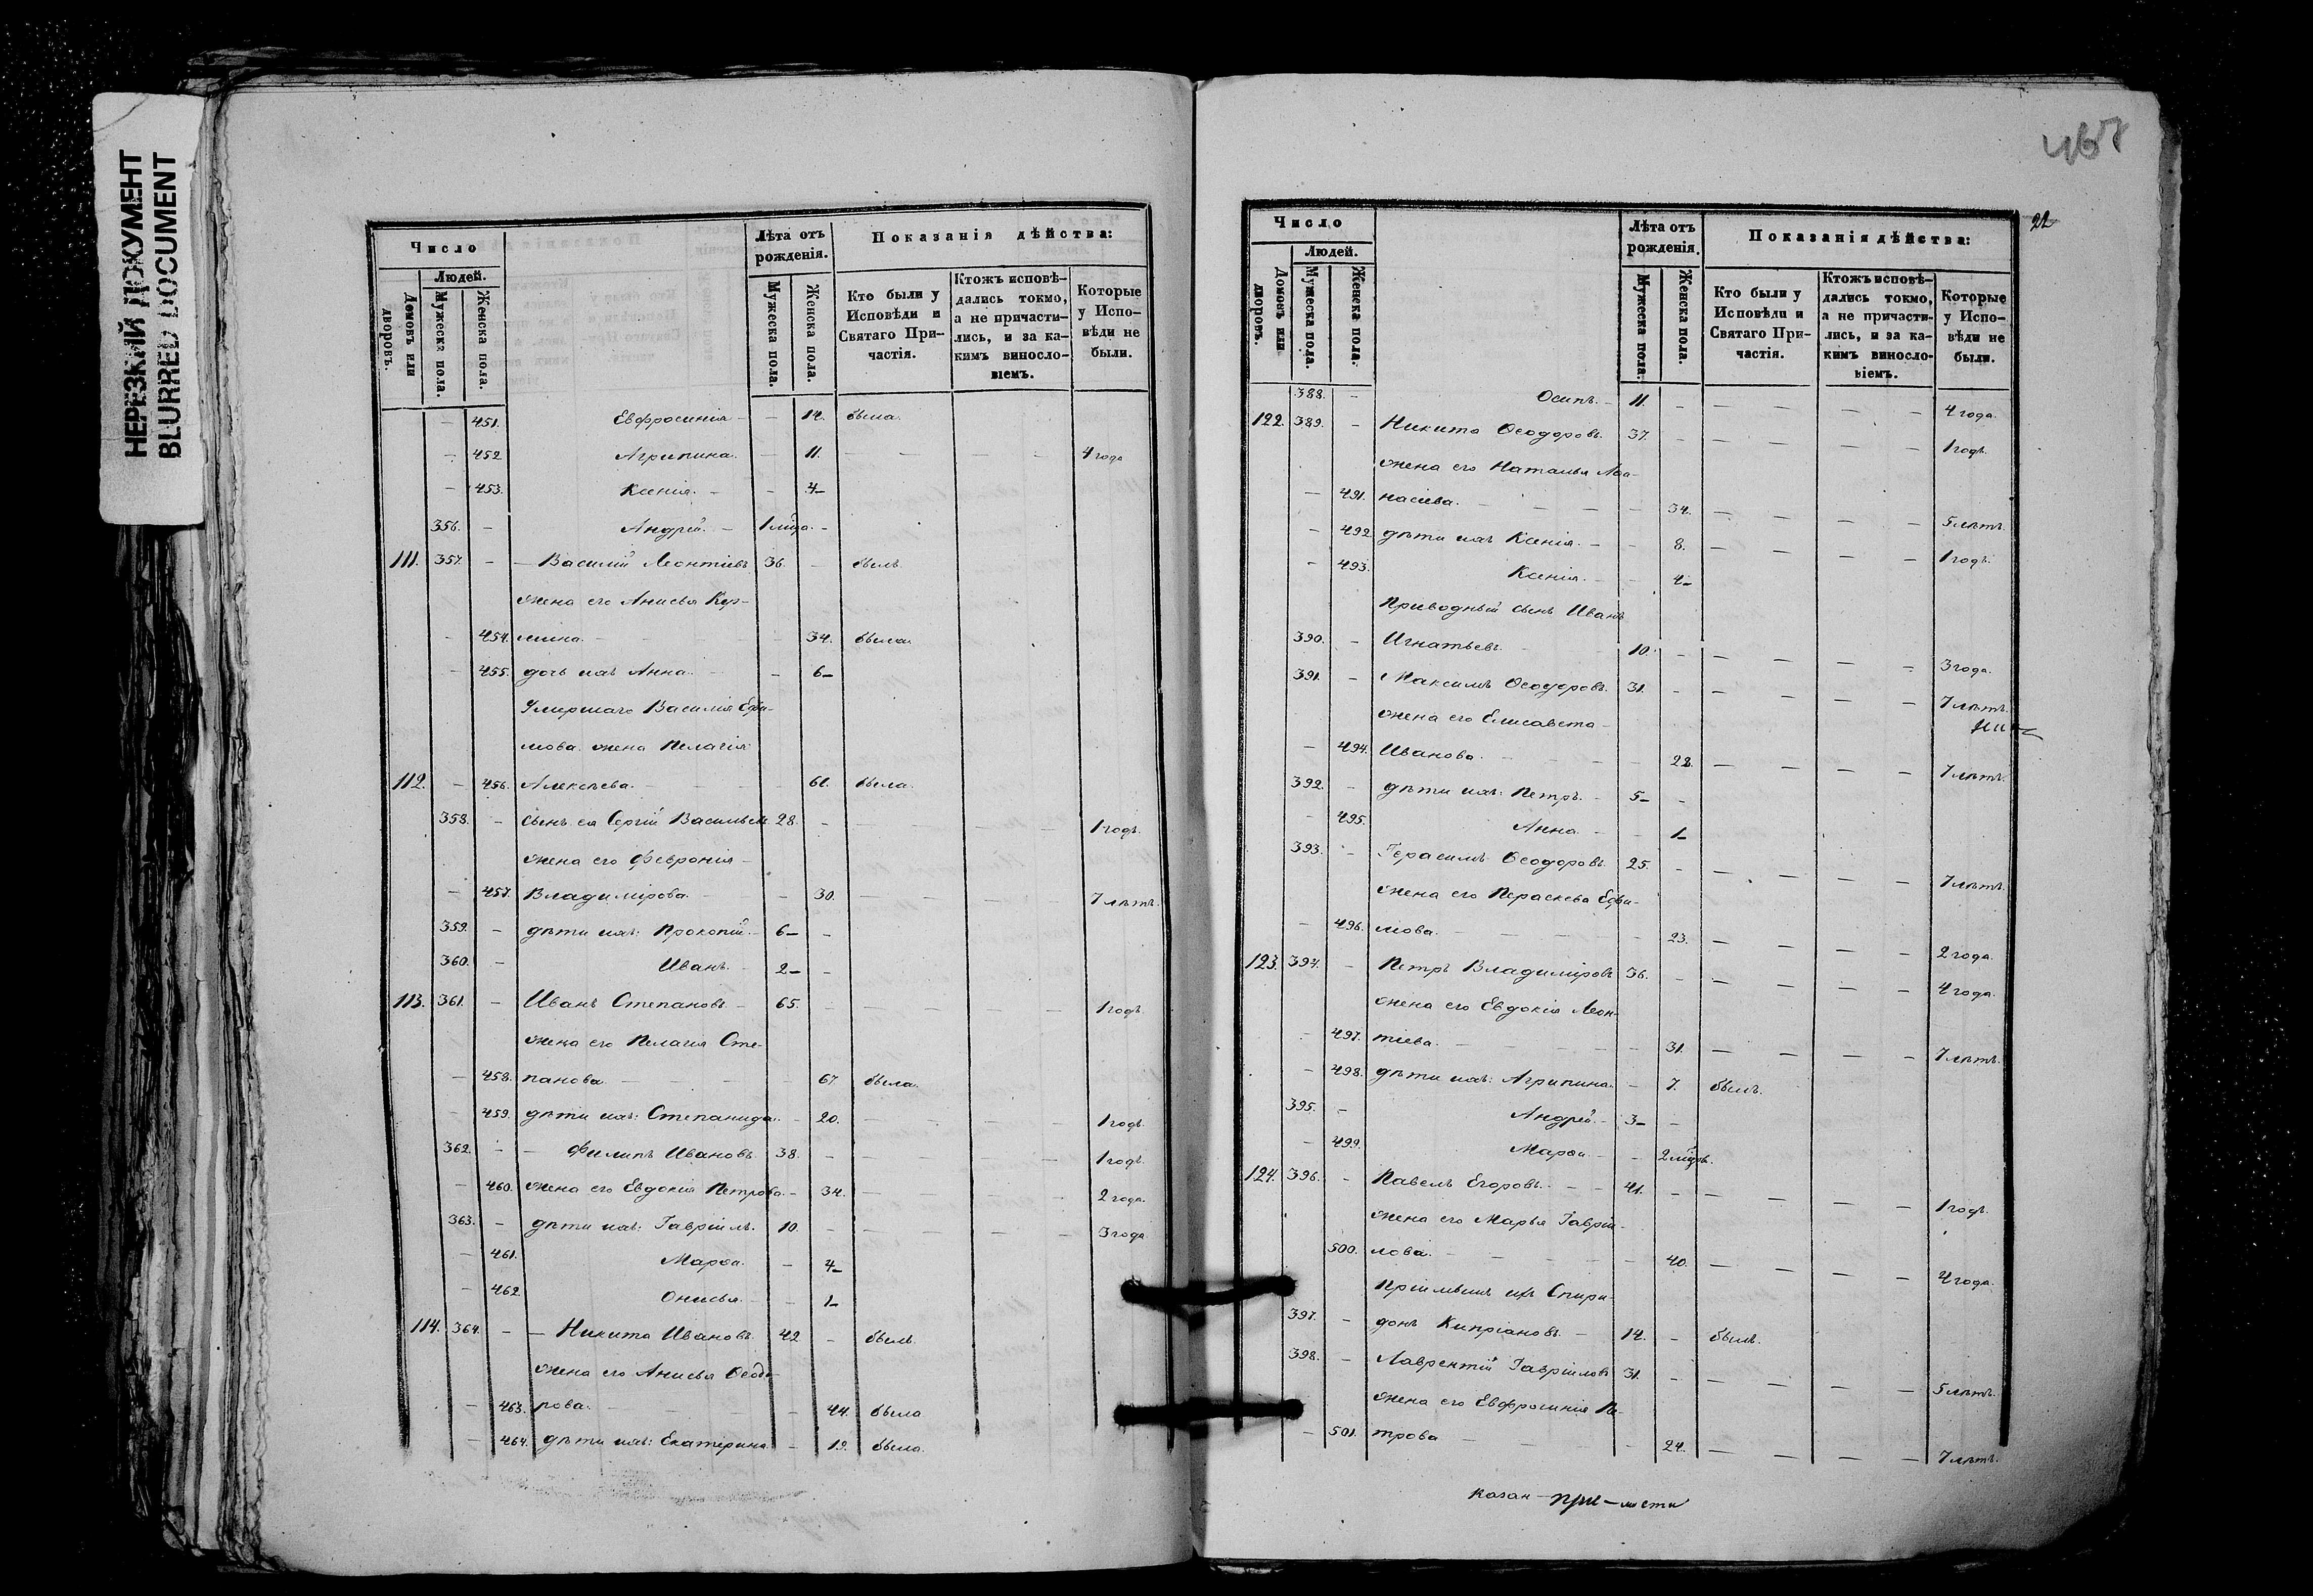 НЕРЕЗКИЙ ДОКУМЕНТ
BLURRED DOCUMENT
Число
Людей.
Домовъ или дворовъ.
Мужеска пола.
Женска пола.
Лѣта отъ рожденія.
Мужеска пола.
Женска пола.
Показанія дѣйства:
Кто были у Исповѣди и Святаго При-
частія.
Ктожъ исповѣ-
дались токмо,
а не причасти-
лись, и за ка-
кимъ винosло-
віемъ.
Которые у Испо-
вѣди не были.
— 451. Евфросинія — — 14. была.
— 452 Агрипина. — 11. — — — — 4 года
— 453. Ксенія. — — 4—
356. — Андрей. —
111. 357. — — Василий Леонтіевъ 36. — былъ
жена его Анисья Кер-
— 454. мина. — — — 34. была.
— 455. дочь ихъ Анна. — — 6—
Умершаго Василія Ефи-
мова жена Пелагія
112. — 456. Алексѣева. — — — 61. была.
358. — сынъ ея Сергій Васильевъ 28. — — — — 1 годъ.
жена его Феврония —
— 457. Владимірова. — — 30. — — — 7 лѣтъ.
359. — дѣти ихъ: Прокопій. — 6— —
360. — Иванъ. — 2— —
113. 361. — Иванъ Степановъ — 65. — — — — — 1 годъ.
жена его Пелагія Сте-
— 458. панова — — — 67 была.
— 459. дѣти ихъ: Степанида. — 20. — — — — 1 годъ.
362. — — Филипъ Ивановъ. 38. — — — — — 1 годъ.
— 460. жена его Евдокія Петрова. — 34. — — — — 2 года.
363. — дѣти ихъ: Гавріилъ. 10. — — — — — 3 года
— 461. Марѳа. — 4—
— 462 Онисья. — 1—
114. 364. — — Никита Ивановъ. 42 — былъ.
жена его Анисья Ѳеодо-
— 463. рова. — — — — 44. была
— 464. дѣти ихъ: Екатерина — 19. была.
22
Число
Людей.
Домовъ или дворовъ.
Мужеска пола.
Женска пола.
Лѣта отъ рожденія.
Мужеска пола.
Женска пола.
Показанія дѣйства:
Кто были у Исповѣди и Святаго При-
частія.
Ктожъ исповѣ-
дались токмо,
а не причасти-
лись, и за ка-
кимъ винosло-
віемъ.
Которые у Испо-
вѣди не были.
388. — Осипъ. — 11. — — — — — 4 года.
122. 389. — Никита Ѳеодоровъ. 37. — — — — — 1 годъ.
жена его Наталья Аѳа-
— 491. насіева. — — — — 34. — — — — 5 лѣтъ.
— 492. дѣти ихъ Ксенія. — — 8. — — — — 1 годъ.
— 493. Ксенія. — — 4—
Приводный сынъ Иванъ
390. — Игнатьевъ. — 10. — — — — — 3 года.
391. — Максимъ Ѳеодоровъ. 31. — — — — — 7 лѣтъ.
жена его Елисавета —
— 494. Иванова. — — — — 28. — — — — 7 лѣтъ.
392. — дѣти ихъ: Петръ. — 5— —
— 495. Анна. — — 1—
393. — Герасимъ Ѳеодоровъ. 25. — — — — — 7 лѣтъ.
жена его Параскева Ефи-
— 496. мова. — — — — 23. — — — — 2 года.
123. 394. — Петръ Владиміровъ 36. — — — — — 4 года.
жена его Евдокія Леон-
— 497. тіева. — — — — 31. — — — — 7 лѣтъ.
— 498. дѣти ихъ: Агрипина. — 7. былъ.
395. — Андрей. — 3— —
— 499. Марѳа — —
124. 396. — Павелъ Егоровъ. — — 41. — — — — — 1 годъ.
жена его Марья Гаврии-
500. лова. — — — — 40. — — — — 4 года.
Пріемышъ ихъ Спири-
397. — донъ Кипріановъ. — 14. — былъ.
398. — Лаврентій Гавріиловъ 31. — — — — — 5 лѣтъ.
жена его Евфросинія Пе-
— 501. трова — — — 24. — — — — 7 лѣтъ.